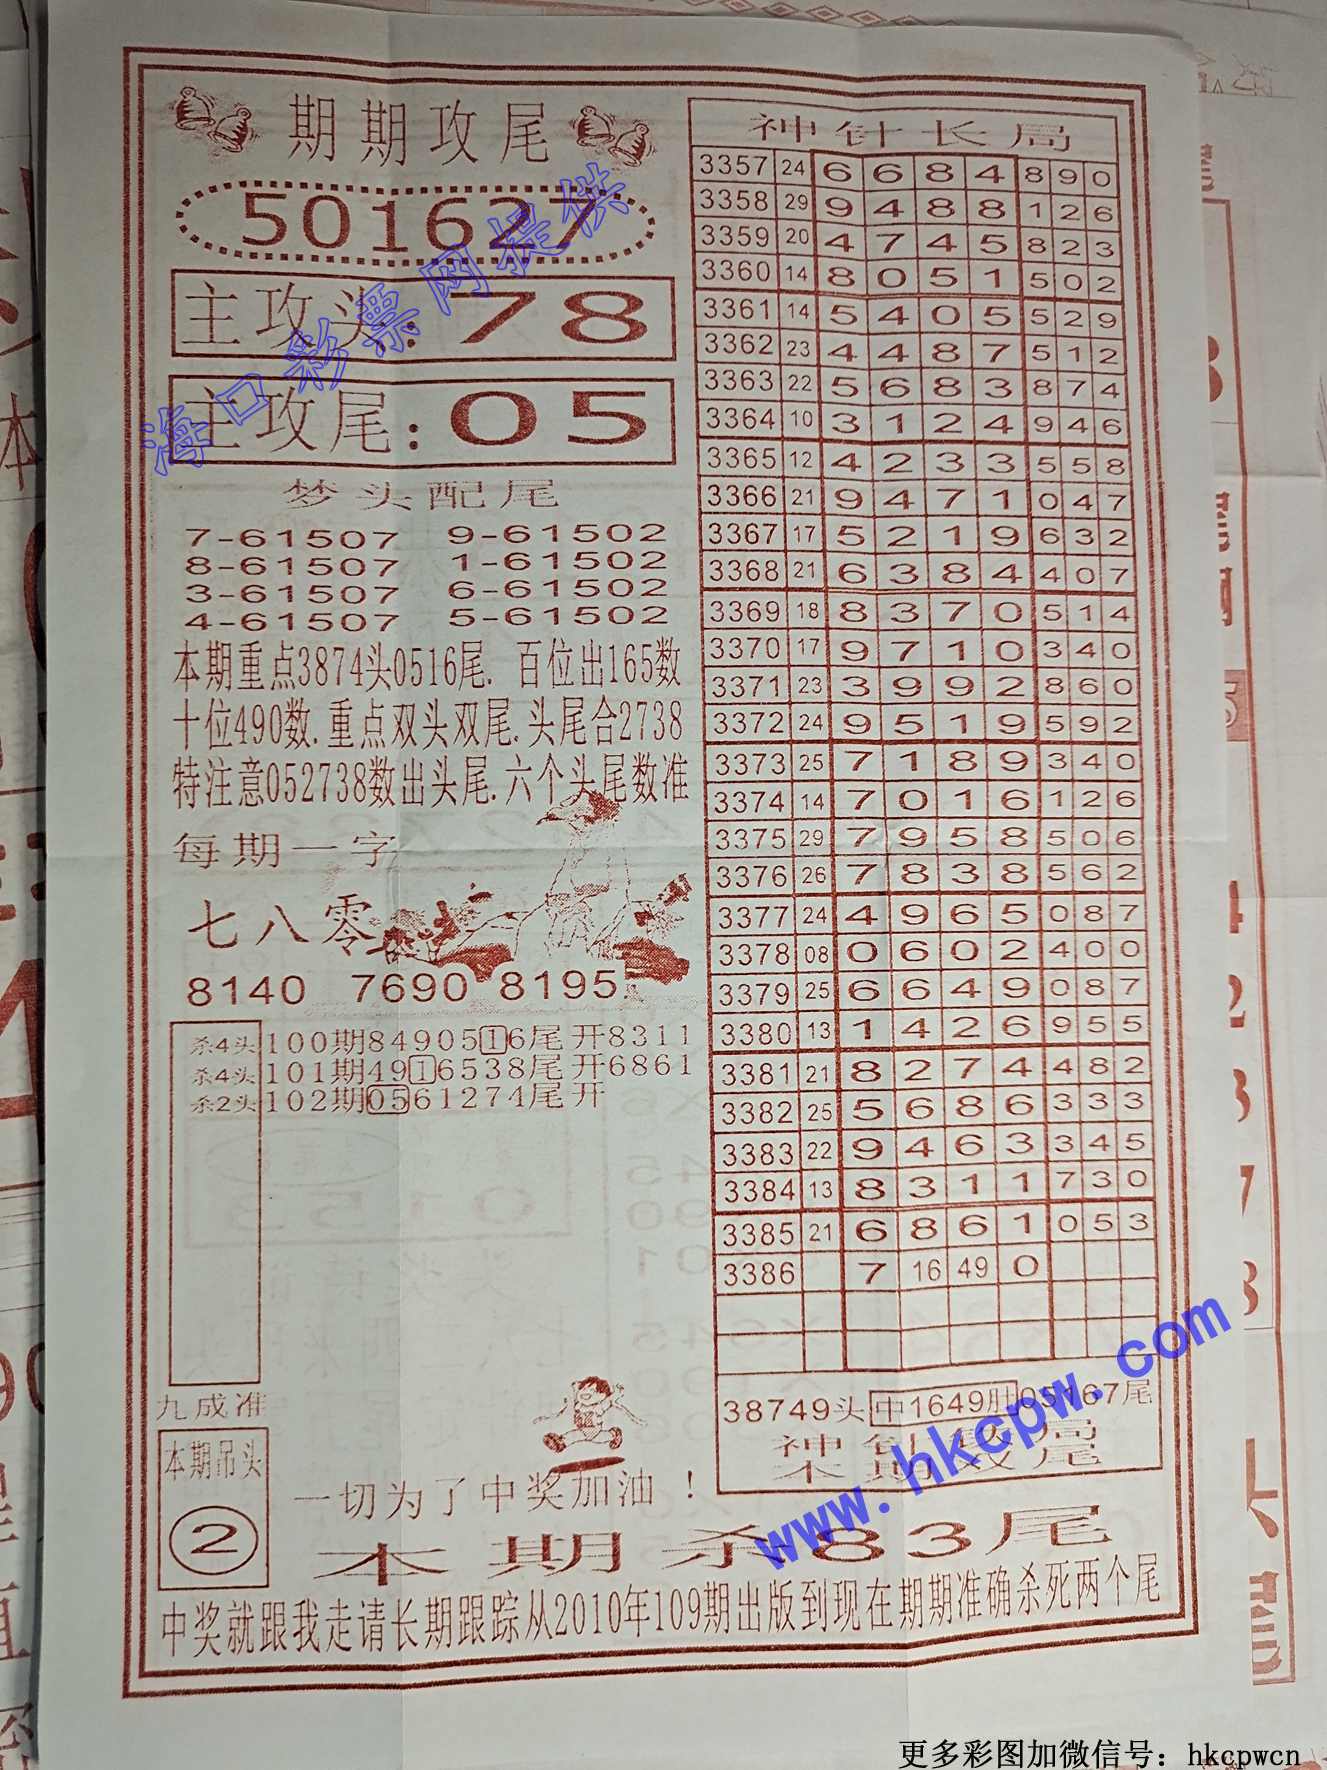 期期攻尾
501627
主攻头:78
主攻尾:05
梦头配尾
7-61507 9-61502
8-61507 1-61502
3-61507 6-61502
4-61507 5-61502
本期重点3874头0516尾. 百位出165数
十位490数.重点双头双尾.头尾合2738
特注意052738数出头尾.六个头尾数准
每期一字
七八零
8140 7690 8195
杀4头 100期8490516尾开8311
杀4头 101期4916538尾开6861
杀2头 102期0561274尾开
九成准
本期吊头
②
一切为了中奖加油！
神针长局
3357 24 6 6 8 4 8 9 0
3358 29 9 4 8 8 1 2 6
3359 20 4 7 4 5 8 2 3
3360 14 8 0 5 1 5 0 2
3361 14 5 4 0 5 5 2 9
3362 23 4 4 8 7 5 1 2
3363 22 5 6 8 3 8 7 4
3364 10 3 1 2 4 9 4 6
3365 12 4 2 3 3 5 5 8
3366 21 9 4 7 1 0 4 7
3367 17 5 2 1 9 6 3 2
3368 21 6 3 8 4 4 0 7
3369 18 8 3 7 0 5 1 4
3370 17 9 7 1 0 3 4 0
3371 23 3 9 9 2 8 6 0
3372 24 9 5 1 9 5 9 2
3373 25 7 1 8 9 3 4 0
3374 14 7 0 1 6 1 2 6
3375 29 7 9 5 8 5 0 6
3376 26 7 8 3 8 5 6 2
3377 24 4 9 6 5 0 8 7
3378 08 0 6 0 2 4 0 0
3379 25 6 6 4 9 0 8 7
3380 13 1 4 2 6 9 5 5
3381 21 8 2 7 4 4 8 2
3382 25 5 6 8 6 3 3 3
3383 22 9 4 6 3 3 4 5
3384 13 8 3 1 1 7 3 0
3385 21 6 8 6 1 0 5 3
3386 7 16 49 0
38749头中1649肚05167尾
本期杀83尾
中奖就跟我走请长期跟踪从2010年109期出版到现在期期准确杀死两个尾
海口彩票网提供
www.hkcpw.com
更多彩图加微信号：hkcpwcn